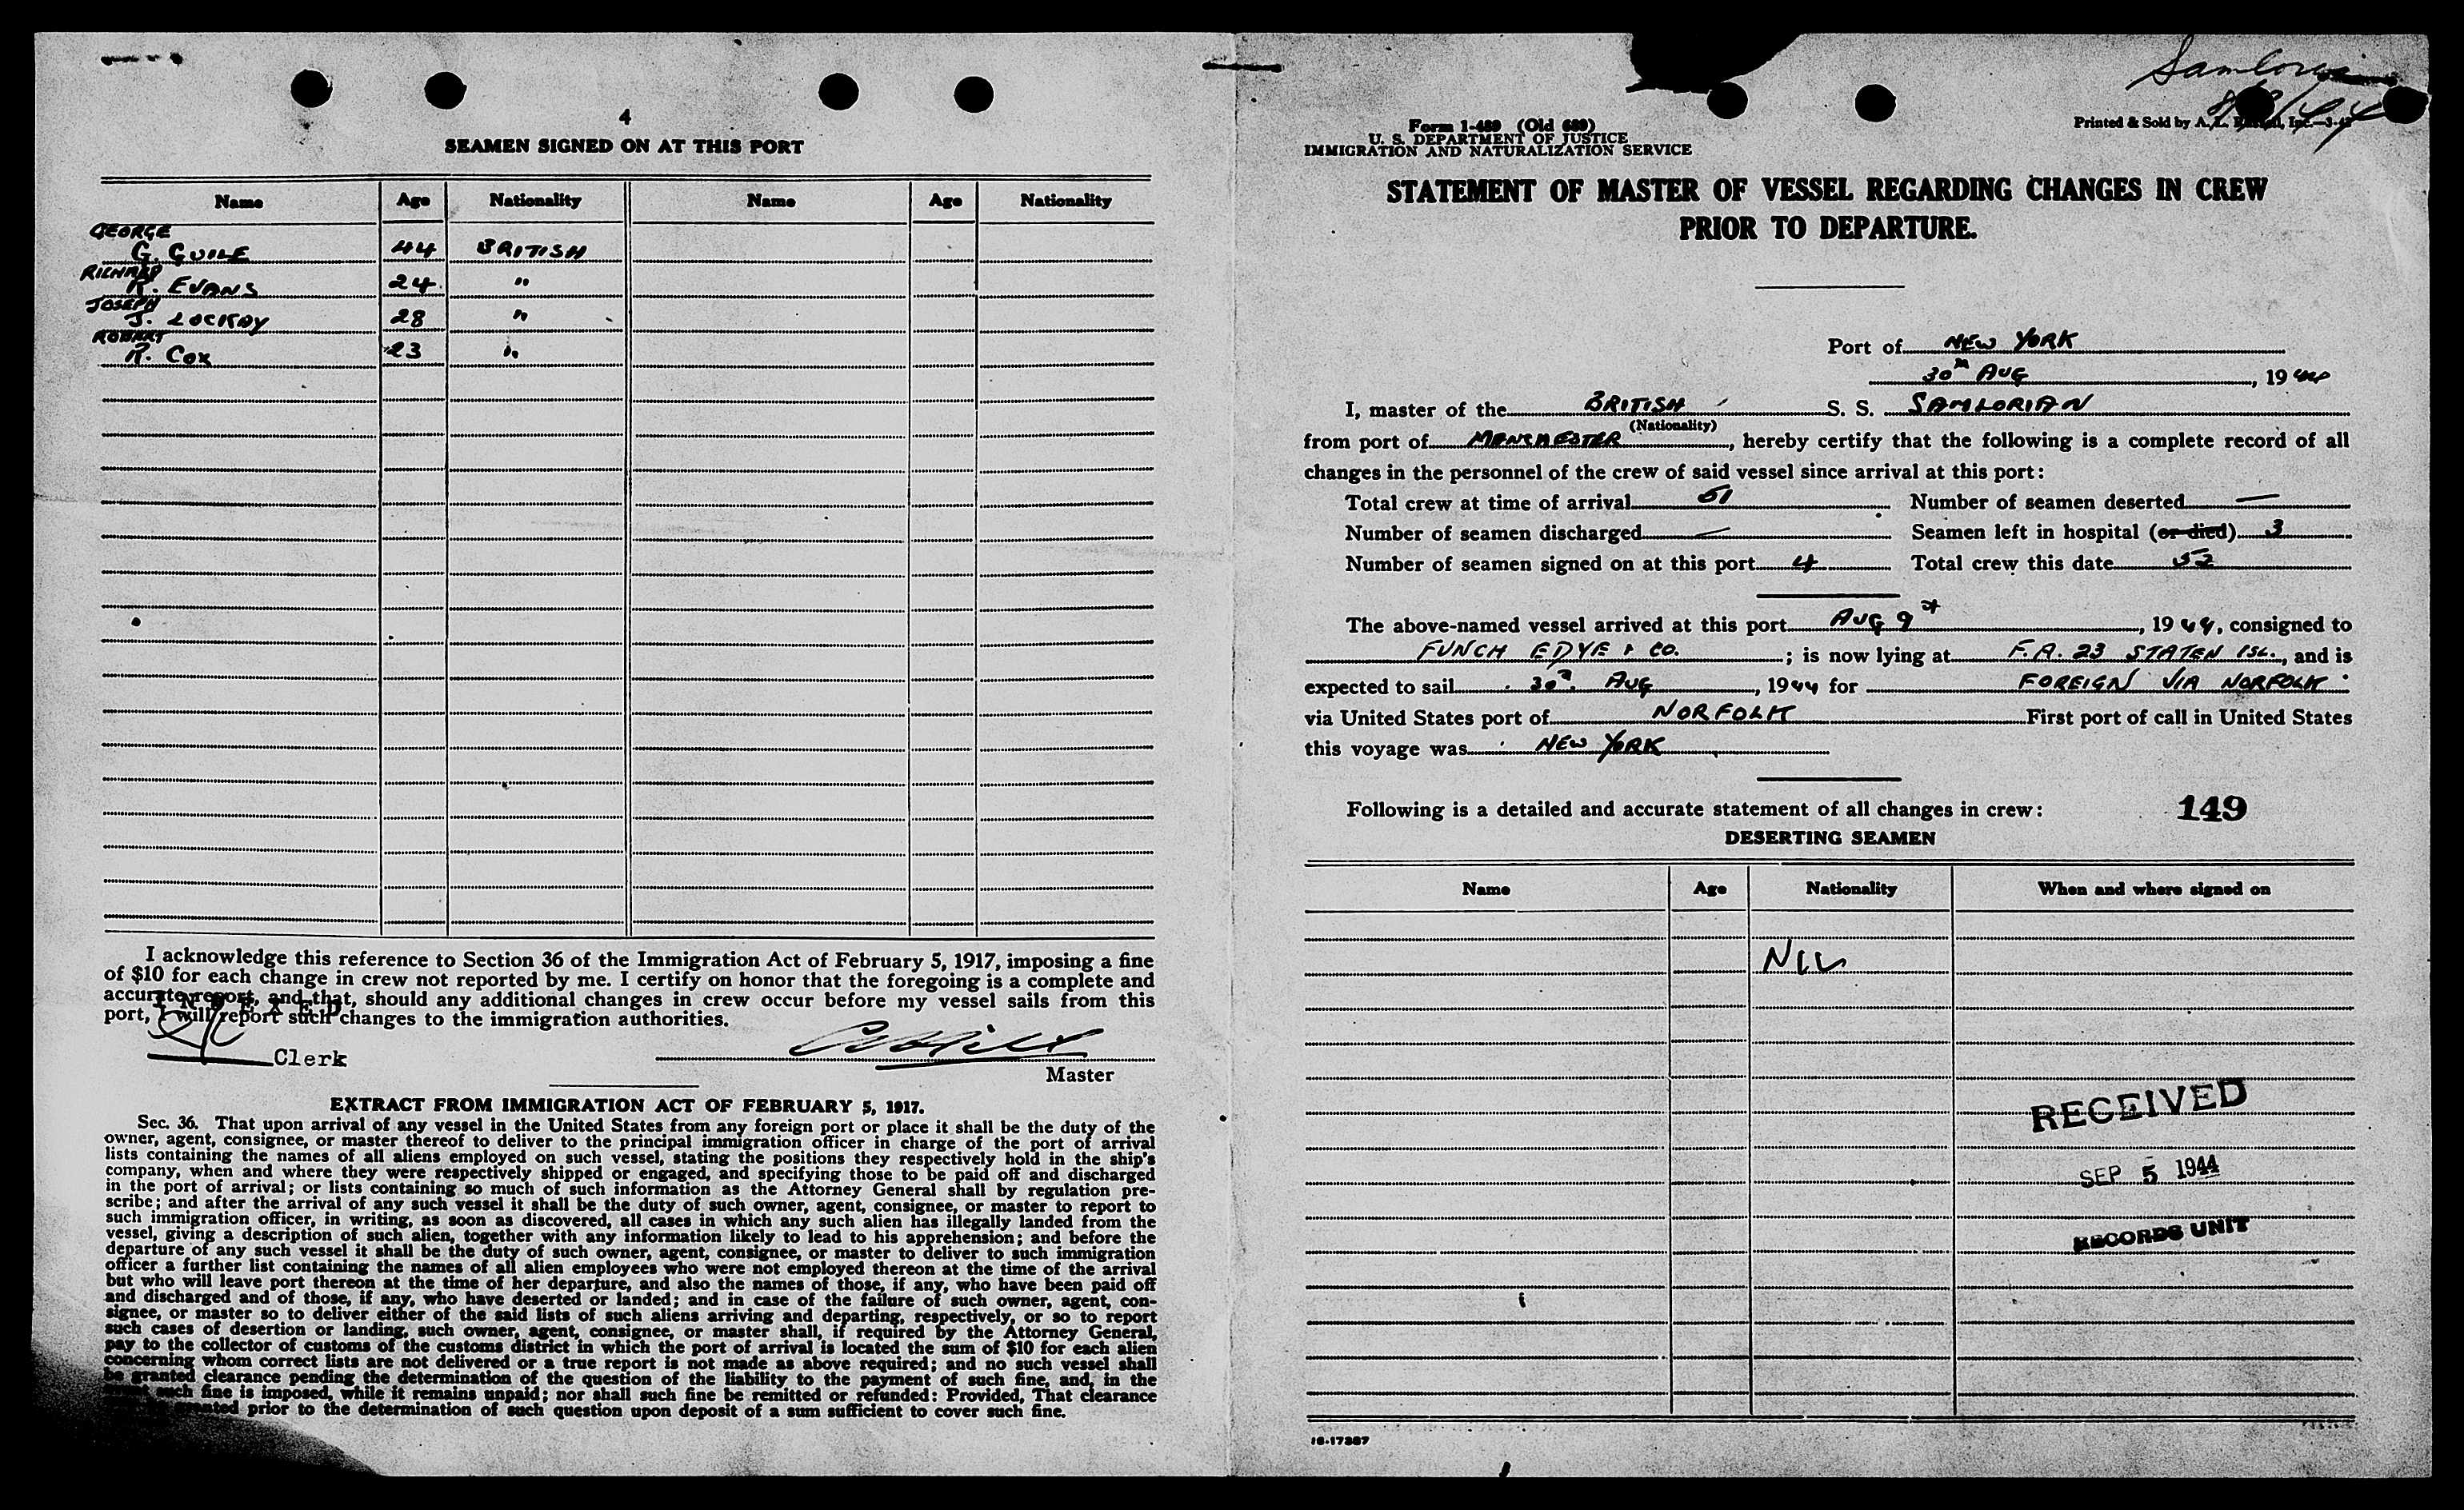 4
SEAMEN SIGNED ON AT THIS PORT
Name Age Nationality Name Age Nationality
GEORGE
G. GUILE 44 BRITISH
RICHARD
R. EVANS 24 "
JOSEPH
J. LOCKAY 28 "
ROBERT
R. COX 23 "
I acknowledge this reference to Section 36 of the Immigration Act of February 5, 1917, imposing a fine
of $10 for each change in crew not reported by me. I certify on honor that the foregoing is a complete and
accurate report, and that, should any additional changes in crew occur before my vessel sails from this
port, I will report such changes to the immigration authorities.
INDEXED
Clerk
Master
EXTRACT FROM IMMIGRATION ACT OF FEBRUARY 5, 1917.
Sec. 36. That upon arrival of any vessel in the United States from any foreign port or place it shall be the duty of the
owner, agent, consignee, or master thereof to deliver to the principal immigration officer in charge of the port of arrival
lists containing the names of all aliens employed on such vessel, stating the positions they respectively hold in the ship's
company, when and where they were respectively shipped or engaged, and specifying those to be paid off and discharged
in the port of arrival; or lists containing so much of such information as the Attorney General shall by regulation pre-
scribe; and after the arrival of any such vessel it shall be the duty of such owner, agent, consignee, or master to report to
such immigration officer, in writing, as soon as discovered, all cases in which any such alien has illegally landed from the
vessel, giving a description of such alien, together with any information likely to lead to his apprehension; and before the
departure of any such vessel it shall be the duty of such owner, agent, consignee, or master to deliver to such immigration
officer a further list containing the names of all alien employees who were not employed thereon at the time of the arrival
but who will leave port thereon at the time of her departure, and also the names of those, if any, who have been paid off
and discharged and of those, if any, who have deserted or landed; and in case of the failure of such owner, agent, con-
signee, or master so to deliver either of the said lists of such aliens arriving and departing, respectively, or so to report
such cases of desertion or landing, such owner, agent, consignee, or master shall, if required by the Attorney General,
pay to the collector of customs of the customs district in which the port of arrival is located the sum of $10 for each alien
concerning whom correct lists are not delivered or a true report is not made as above required; and no such vessel shall
be granted clearance pending the determination of the question of the liability to the payment of such fine, and, in the
such fine is imposed, while it remains unpaid; nor shall such fine be remitted or refunded: Provided, That clearance
granted prior to the determination of such question upon deposit of a sum sufficient to cover such fine.
Samlorian
Form 1-489 (Old 689)
U. S. DEPARTMENT OF JUSTICE
IMMIGRATION AND NATURALIZATION SERVICE
Printed & Sold by A. L.
STATEMENT OF MASTER OF VESSEL REGARDING CHANGES IN CREW
PRIOR TO DEPARTURE.
Port of NEW YORK
30th AUG, 1944
I, master of the BRITISH S. S. SAMLORIAN
(Nationality)
from port of MANCHESTER, hereby certify that the following is a complete record of all
changes in the personnel of the crew of said vessel since arrival at this port:
Total crew at time of arrival 51 Number of seamen deserted —
Number of seamen discharged — Seamen left in hospital (or died) 3
Number of seamen signed on at this port 4 Total crew this date 52
The above-named vessel arrived at this port AUG 9th, 1944, consigned to
FUNCH EDYE & CO.; is now lying at F.A. 23 STATEN ISL., and is
expected to sail 30th AUG, 1944 for FOREIGN VIA NORFOLK
via United States port of NORFOLK First port of call in United States
this voyage was NEW YORK
Following is a detailed and accurate statement of all changes in crew: 149
DESERTING SEAMEN
Name Age Nationality When and where signed on
NIL
RECEIVED
SEP 5 1944
RECORDS UNIT
16-17387